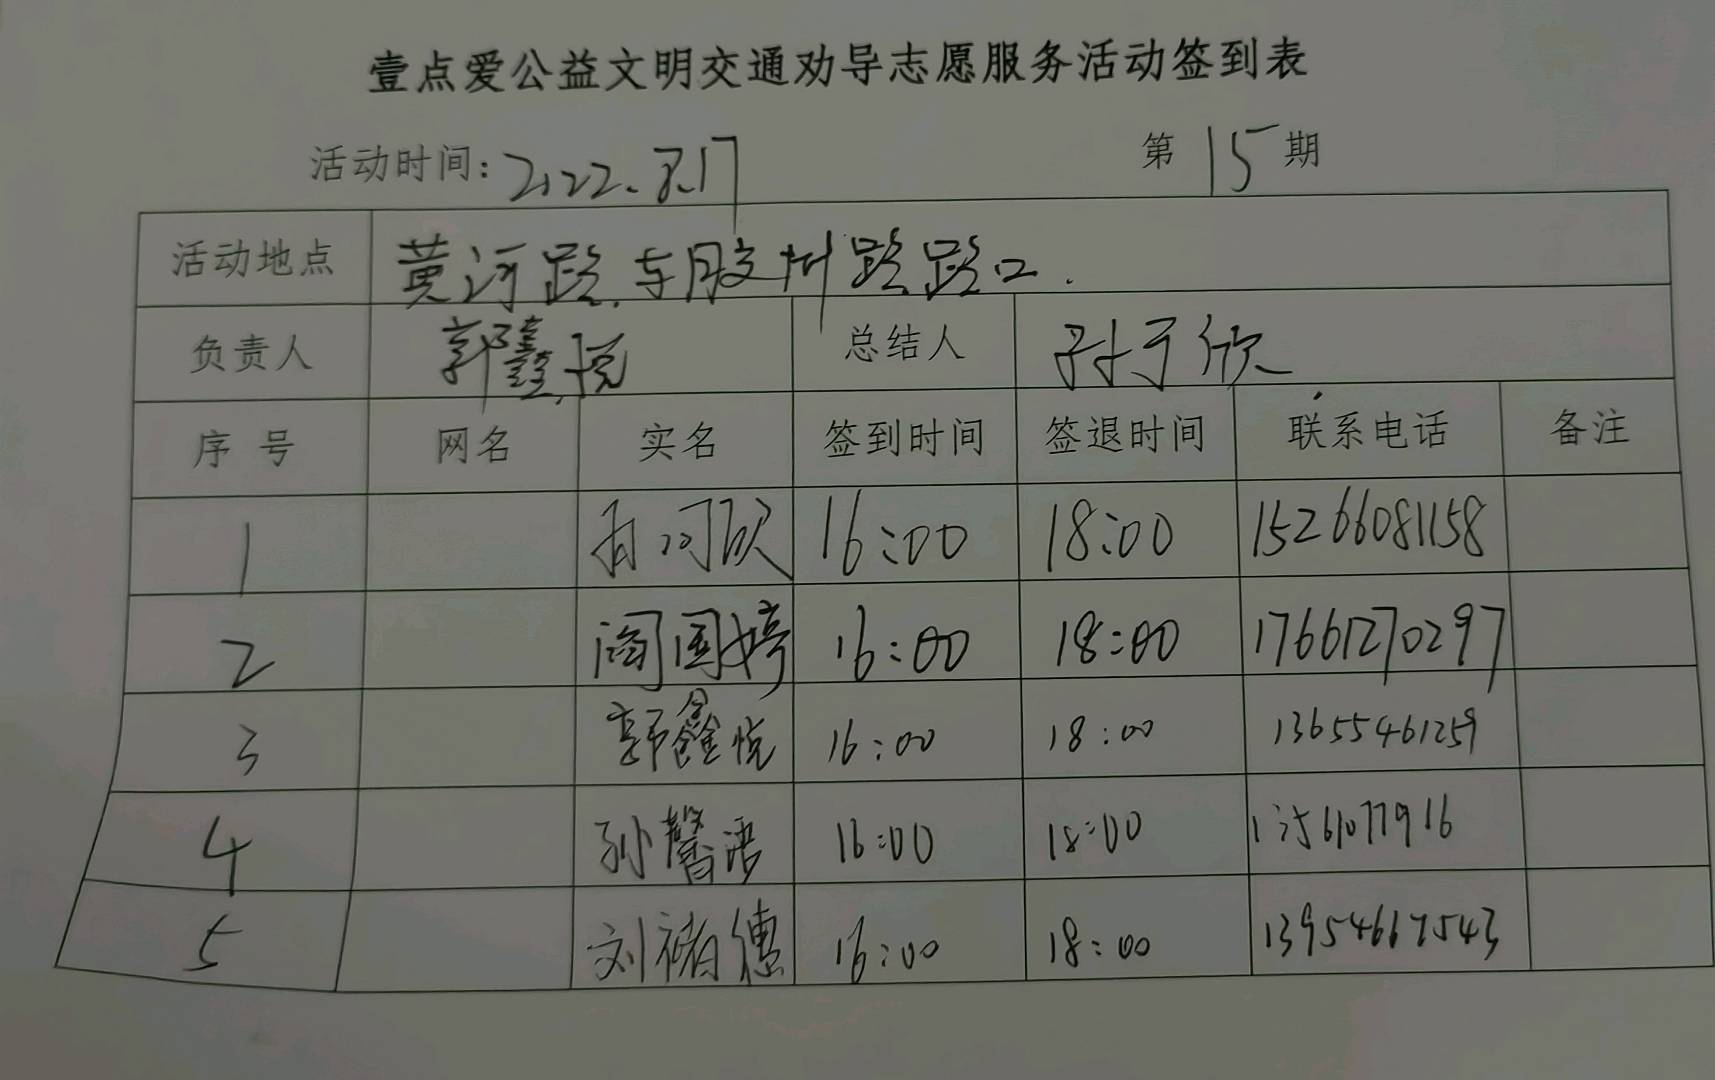 壹点爱公益文明交通劝导志愿服务活动签到表
活动时间: 2022.8.17 第 15 期
活动地点 黄河路东胶州路路口.
负责人 郭鑫悦 总结人 孙于欣
序号 网名 实名 签到时间 签退时间 联系电话 备注
1 16:00 18:00 15266081158
2 阎国婷 16:00 18:00 17661270297
3 郭鑫悦 16:00 18:00 13655461259
4 孙馨语 16:00 18:00
5 刘禇德 16:00 18:00 13954667543